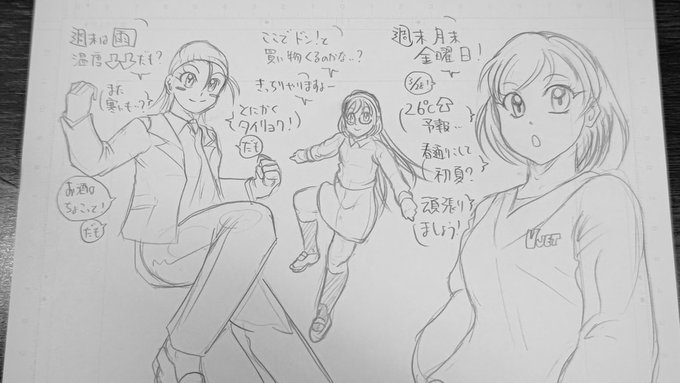 週末月末
金曜日!
3/28!
26℃
予報..
初夏?
頑張り
ましょう!
ここでドン!と
買い物くるのかな..?
きっちりやりますよー
週末は雨
温度凸凹だも?
また
寒い
とにかく
タイリョク!
だも
お酒は
ちょこっと!
だも
VJET